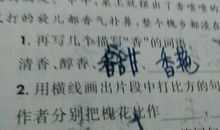 打的旋儿都香气扑鼻,整个槐乡都浸
1.再写几个描写“香”的词
清香、醇香、香甜 香艳
2.用横线画出片段中打比方的句
作者分别把槐花比作